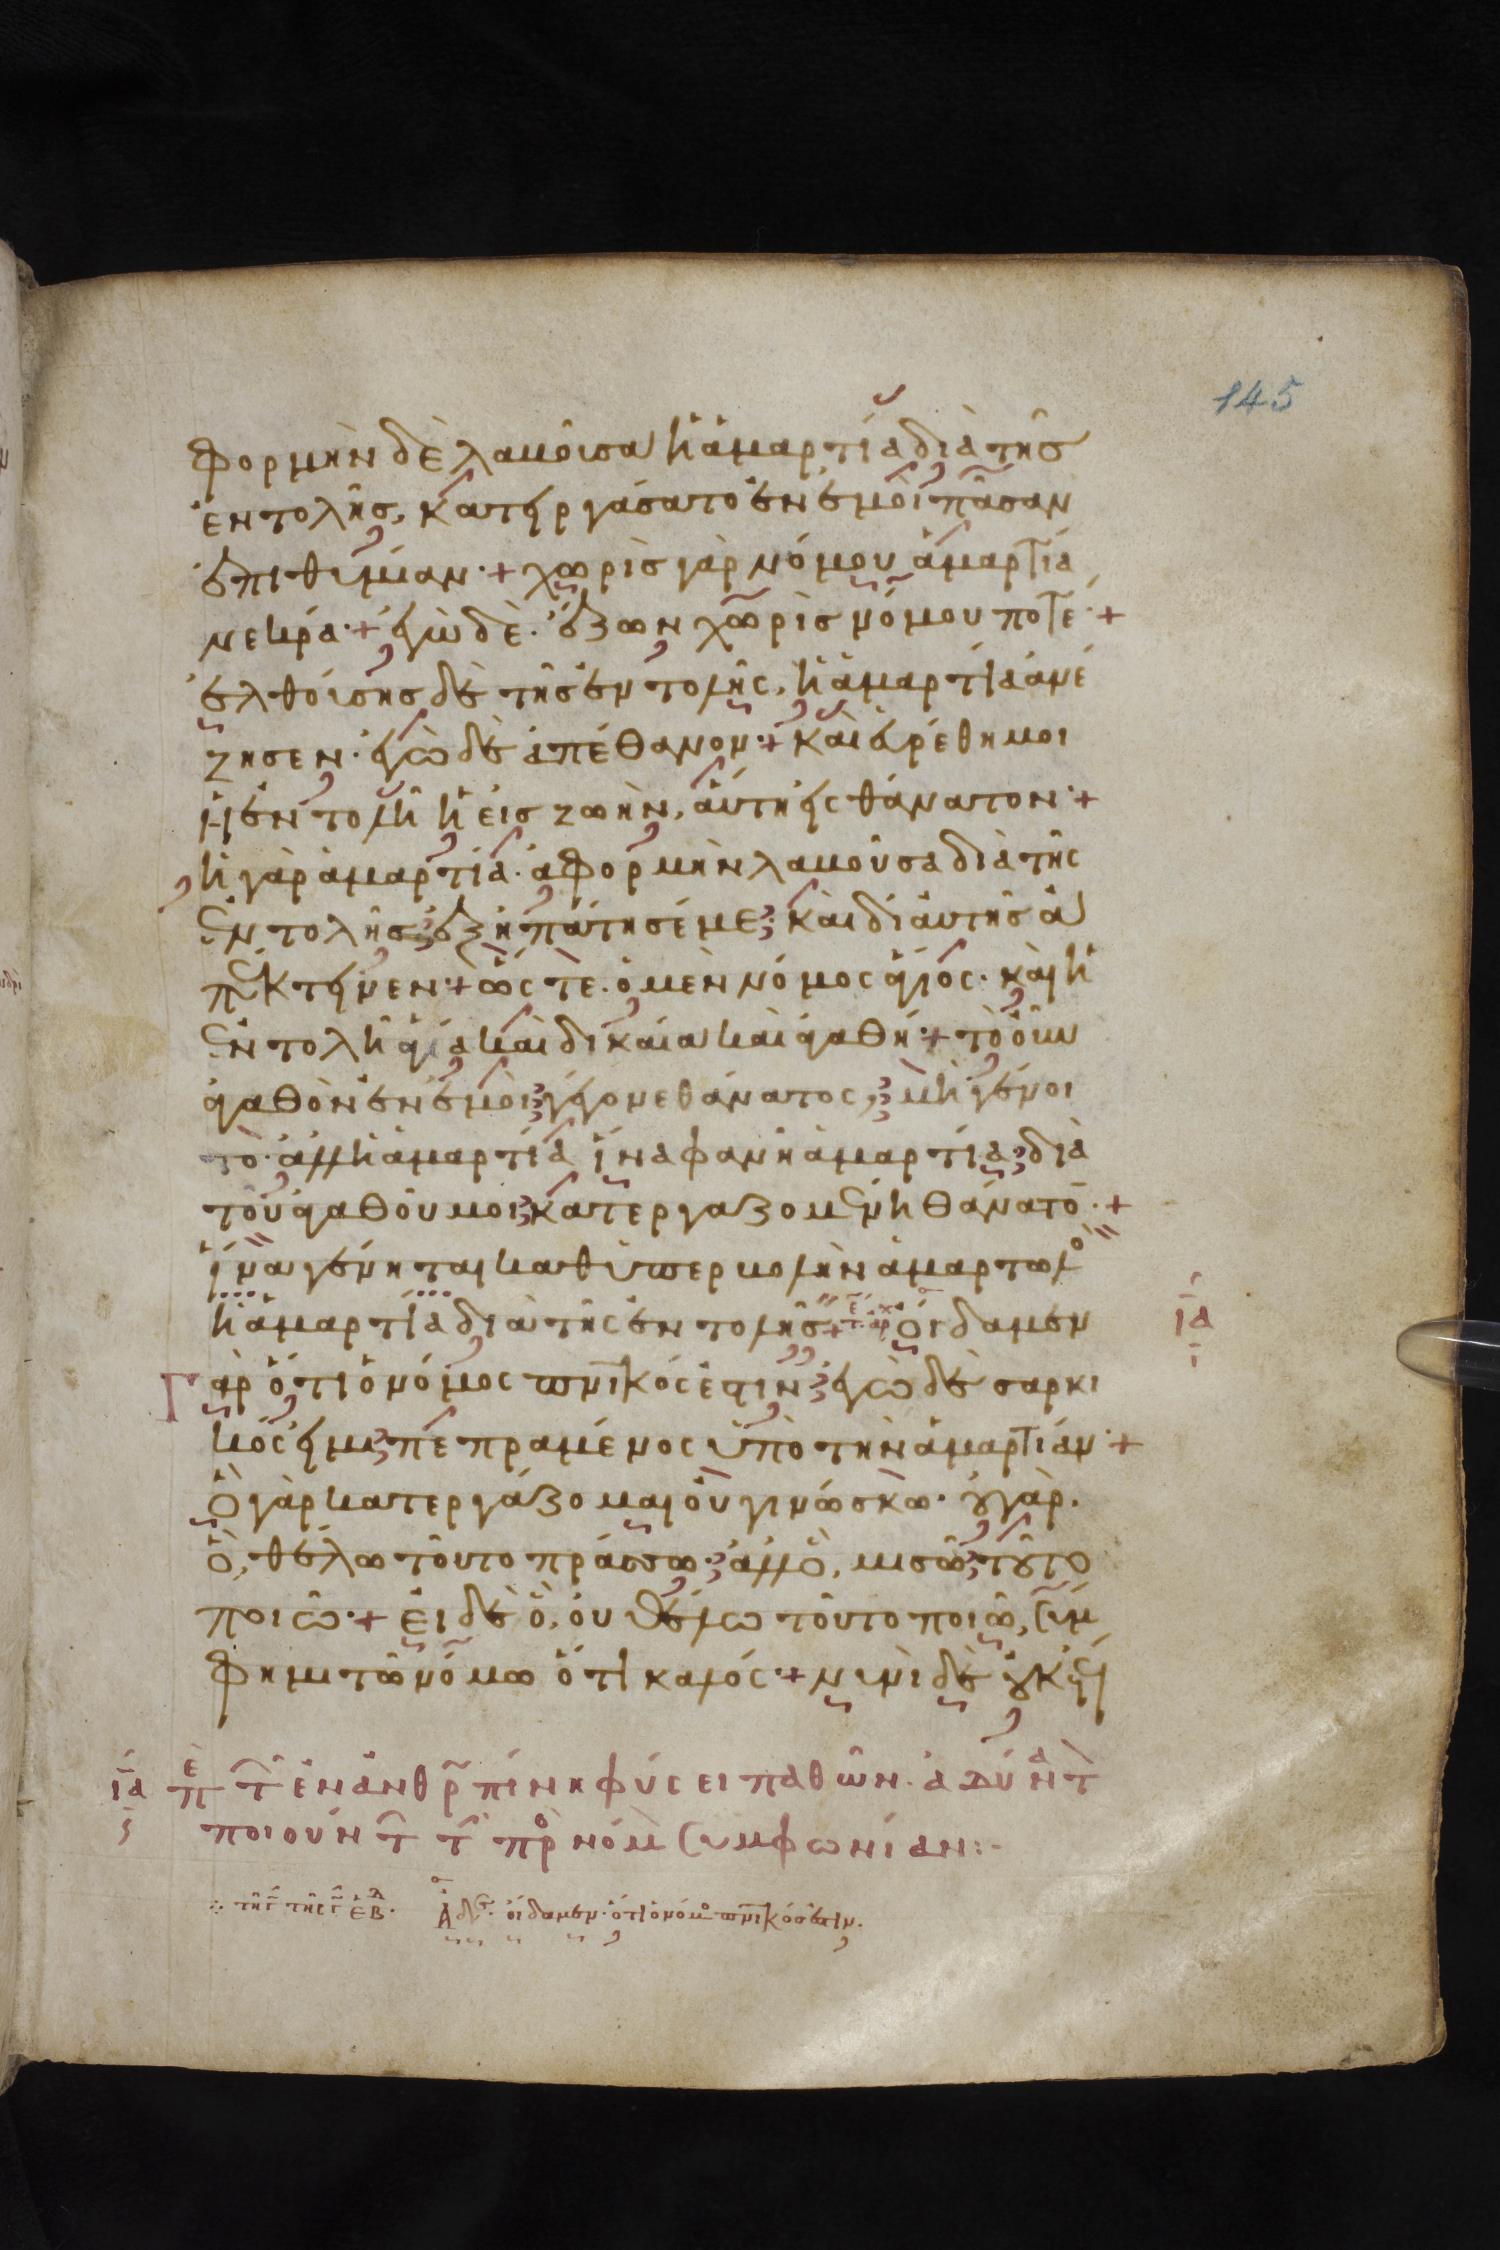 145
φορμὴν δὲ λαβοῦσα ἡ ἁμαρτία διὰ τῆς
ἐντολῆς, κατηργάσατο ἐν ἐμοὶ πᾶσαν
ἐπιθυμίαν·+ χωρὶς γὰρ νόμου ἁμαρτία
νεκρά·+ ἐγὼ δὲ· ἔζων χωρὶς νόμου ποτέ·+
ἐλθούσης δὲ τῆς ἐντολῆς, ἡ ἁμαρτία ἀνέ
ζησεν· ἐγὼ δὲ ἀπέθανον·+ καὶ εὑρέθη μοι
ἡ ἐντολὴ ἡ εἰς ζωὴν, αὕτη εἰς θάνατον·+
ἡ γὰρ ἁμαρτία· ἀφορμὴν λαβοῦσα διὰ τῆς
ἐντολῆς ἐξηπάτησέ με· καὶ δι αὐτῆς ἀ
πέκτεινεν·+ ὥς τε· ὁ μὲν νόμος ἅγιος· καὶ ἡ
ἐντολὴ ἁγία καὶ δικαία καὶ ἀγαθή·+ τὸ οὖν
ἀγαθὸν ἐν ἐμοὶ γέγονε θάνατος, μὴ γένοι
το· ἀλλ ἡ ἁμαρτία ἵνα φανῆ ἁμαρτία· διὰ
τοῦ ἀγαθοῦ μοι κατεργαζομένη θάνατο̄·+
ἵνα γένηται καθ ὑπερβολὴν ἁμαρτωλο
ἡ ἁμαρτία διὰ τῆς ἐντολῆς+ οἴδαμεν
ια
γὰρ ὅτι ὁ νόμος πν̄ικός ἐστιν· ἐγὼ δὲ σαρκι
κός εἰμι πεπραμένος ὑπὸ τὴν ἁμαρτίαν·+
ὃ γὰρ κατεργάζομαι οὐ γινώσκω· οὐ γὰρ·
ὃ, θέλω τοῦτο πράσσω· ἀλλ ὃ, μισῶ τοῦτο
ποιῶ·+ εἰ δὲ ὃ, οὐ θέλω τοῦτο ποιῶ, σύμ
φημι τῶ νόμω ὅτι καλός·+ νυνὶ δὲ οὐκ ἔτι
ια πε τ ἐν ἀνθρ̄πίνη φύσει παθῶν· ἀδύνατ
ποιούντ τ προ νόμ συμφωνίαν:-
Ἀδ· οἴδαμεν· ὅτι ὁ νόμο πν̄ικός ἐστιν·